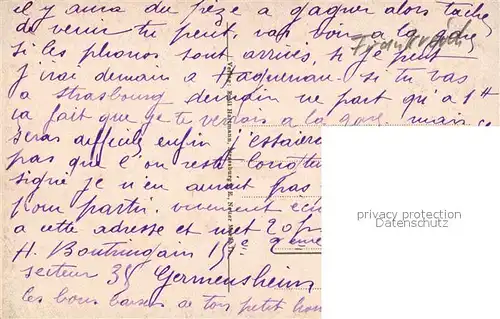 il y aura du pèse a gagner alors tache
de venir tu peut, vas voir a la gare
si les phonos sont arrivés, si je peut
j'irai demain a Haguenau. si tu vas
a strasbourg demain ne part qu'a 1H
ca fait que je te verrais a la gare. mais ca
seras difficile enfin j'essaierai
pas que l'on reste
signé je n'en aurait pas
pour partir. vivement
a cette adresse et met 20f
H. 15e
secteur 35 Germersheim
les bons baisers de ton petit
Frankreich
privacy protection
Datenschutz